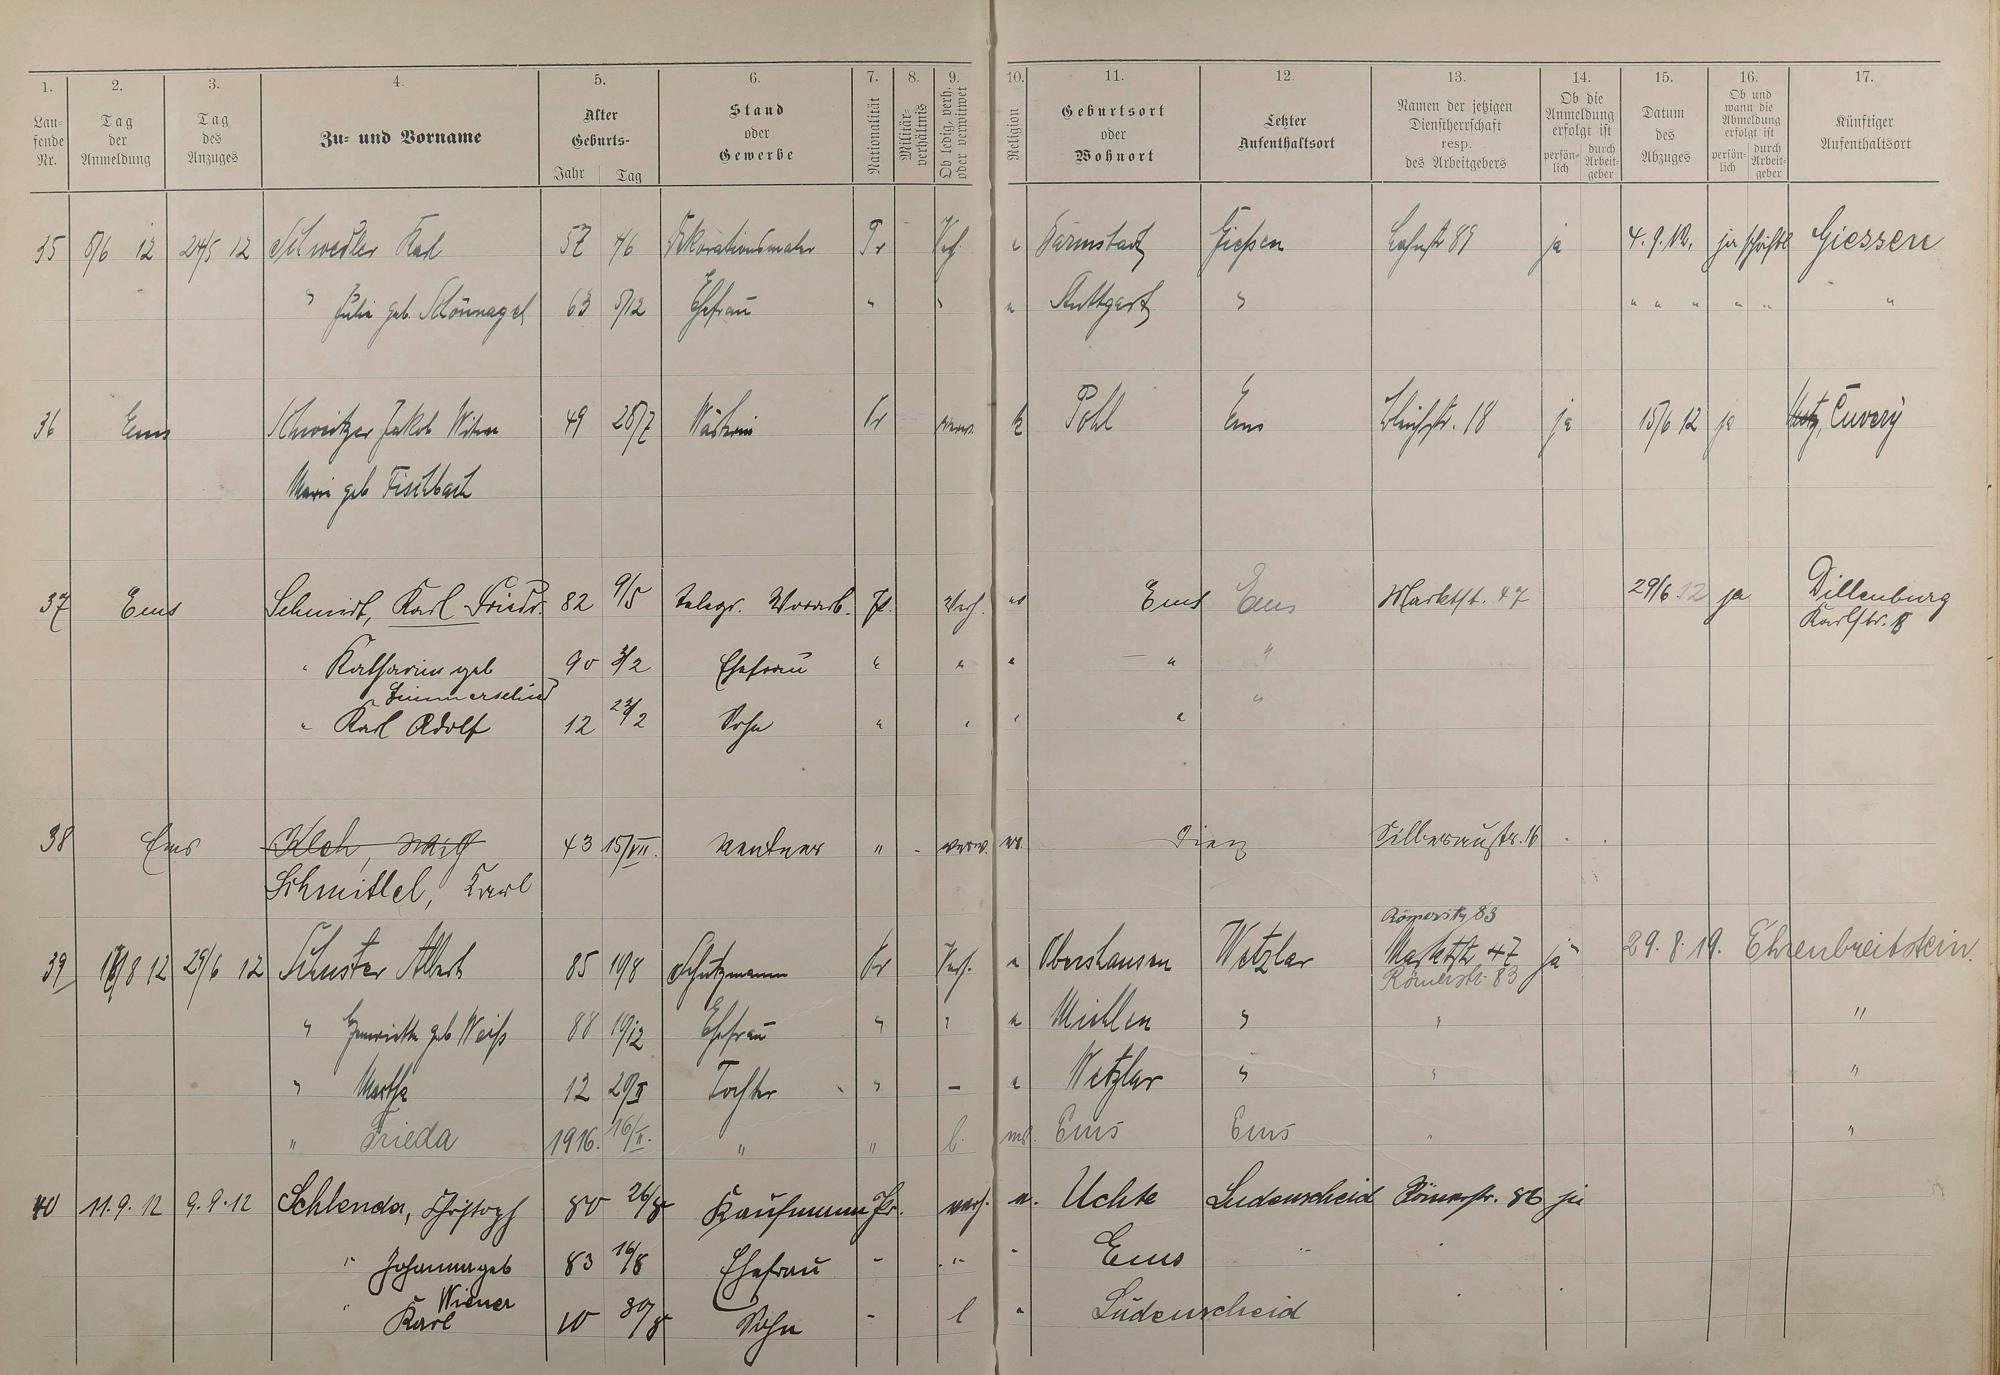 1. 2. 3. 4. 5. 6. 7. 8. 9. 10. 11. 12. 13. 14. 15. 16. 17.
Lau-
fende
Nr.
Tag
der
Anmeldung
Tag
des
Anzuges
Zu- und Vorname
Alter
Geburts-
Jahr Tag
Stand
oder
Gewerbe
Nationalität
Militär-
verhältnis
Ob ledig, verh.
oder verwitwet
Religion
Geburtsort
oder
Wohnort
Letzter
Aufenthaltsort
Namen der jetzigen
Dienstherrschaft
resp.
des Arbeitgebers
Ob die
Anmeldung
erfolgt ist
persön-
lich
durch
Arbeit-
geber
Datum
des
Abzuges
Ob und
wann die
Abmeldung
erfolgt ist
persön-
lich
durch
Arbeit-
geber
Künftiger
Aufenthaltsort
35 5/6 12 24/5 12 Schwedler Karl 57 4/6 Dekorationsmaler Pr Verh Darmstadt Gießen 89 ja 4.9.12. ja schriftl Giessen
" Julie geb. Schönnagel 63 5/12 Ehefrau " " " Stuttgart " " " " " " "
36 Ems Schweitzer Jakob Witwe 49 28/7 Pr Pohl Ems Bleichstr. 18 ja 15/6 12 ja Cuvery
Marie geb Fischbach
37 Ems Schmidt, Karl Friedr. 82 9/5 telegr. Vorarb. Pr. Verh. ev Ems Ems Marktst. 47 29/6 12 ja Dillenburg
Karlstr. 8
" Katharina geb 90 3/2 Ehefrau " " " " "
Zimmerschied
" Karl Adolf 12 23/2 Sohn " " " " "
38 Ems 43 15/VII. Rentner " verw. ev. Diez Silberaustr. 16
Schmittel, Karl
Römerstr 83
39 12 29/6 12 Schuster Albert 85 19/8 Schutzmann Pr Verh. Obershausen Wetzlar Marktstr 47 ja 29.8.19. Ehrenbreitstein.
Römerstr. 83
" Henriette geb Weiß 88 19/12 Ehefrau " " " Miehlen " " "
" Martha 12 20/II Tochter " – Wetzlar " " "
" Frieda 1916. 16/II. " " l. Ems Ems " "
40 11.9.12 9.9.12 Schlenda, Christoph 80 26/8 Kaufmann Pr. verh. ev. Uchte Lüdenscheid Römerstr. 86 ja
" Johanna geb 83 16/8 Ehefrau " " " Ems "
Wiener
" Karl 10 30/8 Sohn " l " Lüdenscheid